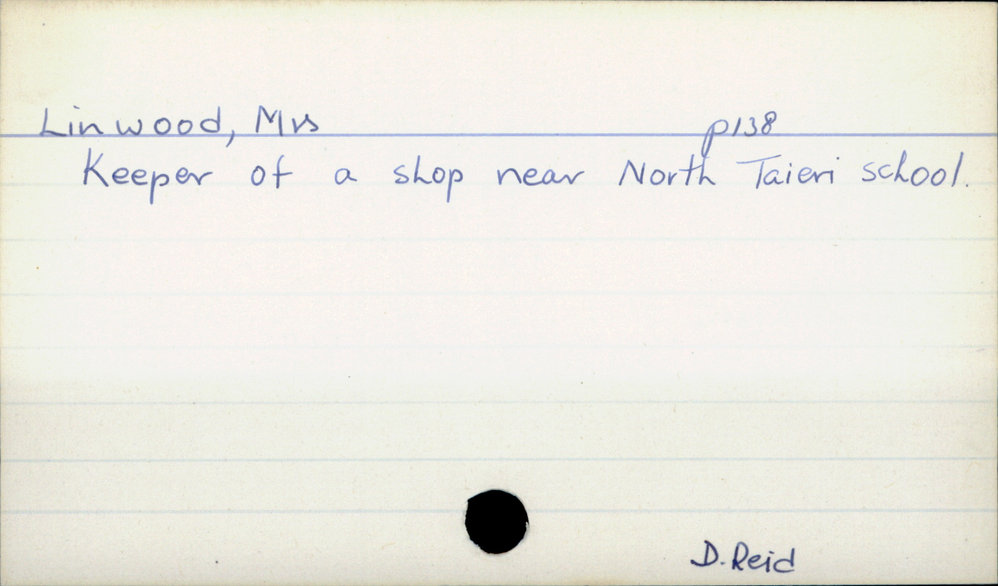 Linwood, Mrs p138
Keeper of a shop near North Taieri school.
D. Reid